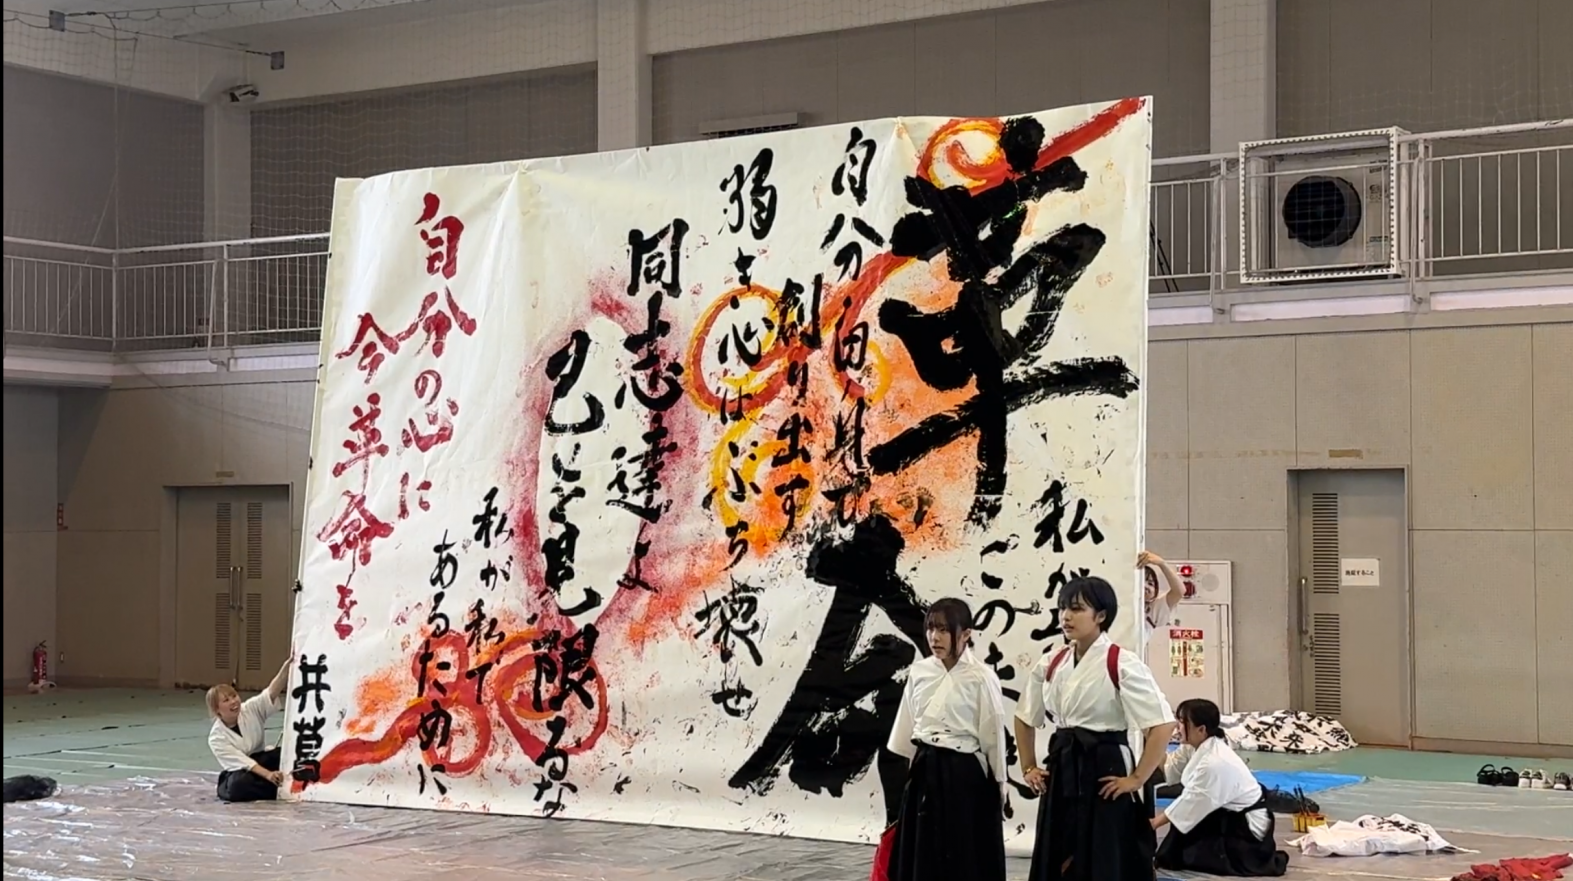 革命
私が
この
自分自身で
創り出す
弱き心はぶち壊せ
同志達よ
己を見限るな
私が私で
あるために
自分の心に
今革命を
井草
消火栓